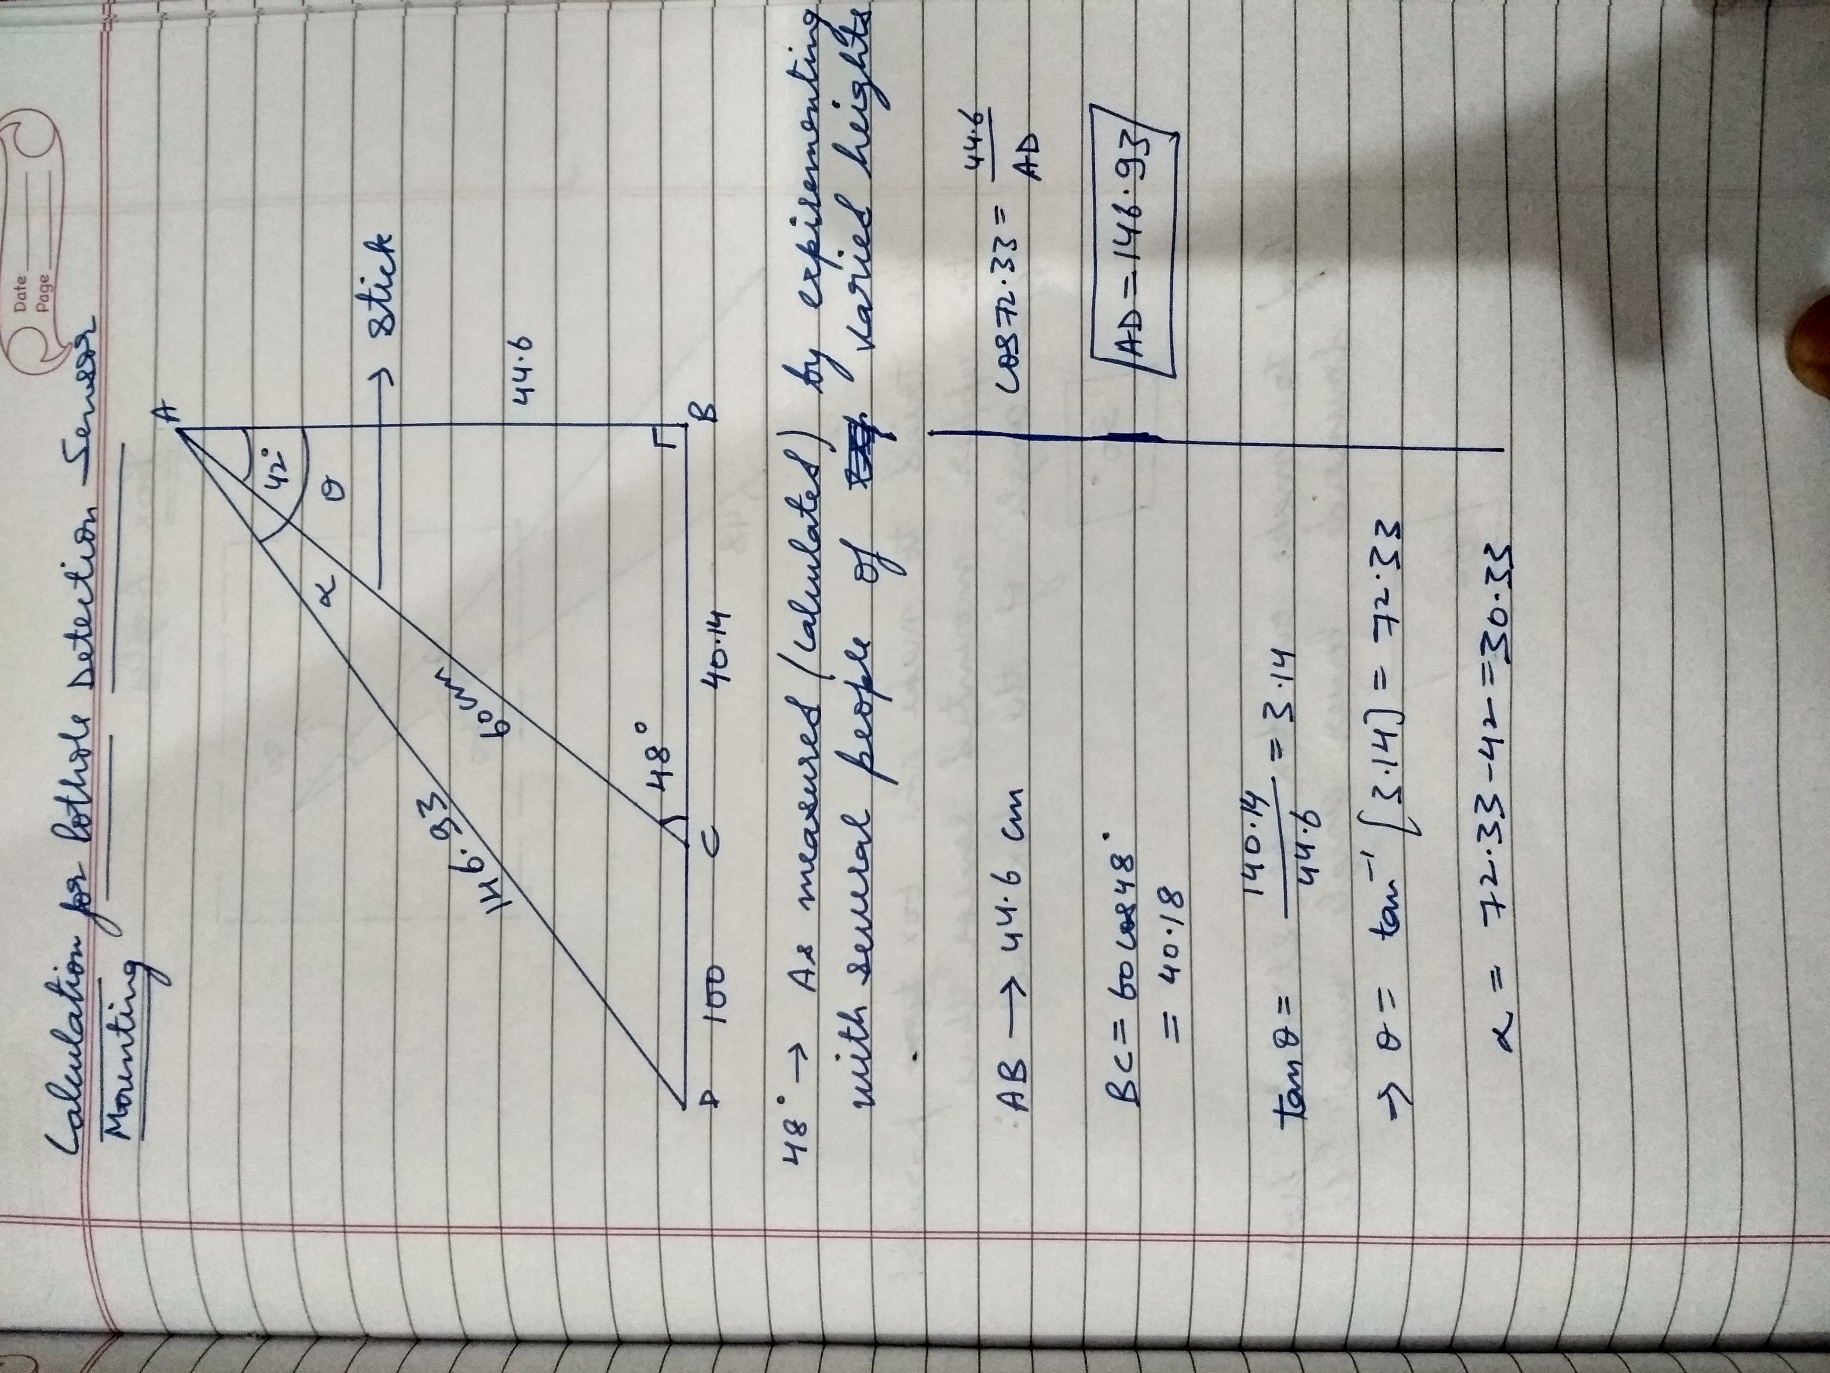 Date
Page
Calculation for Pothole Detection Sensor
Mounting
A
42°
θ
α
→ stick
44.6
60
146.93
48°
B
C
D
40.14
100
48° → As measured (Calculated) by experimenting
with several people of varied heights
AB → 44.6 cm
BC = 60 cos 48°
= 40.18
tan θ = 140.14/44.6 = 3.14
→ θ = tan⁻¹ [3.14] = 72.33
α = 72.33 - 42 = 30.33
cos 72.33 = 44.6/AD
AD = 146.93